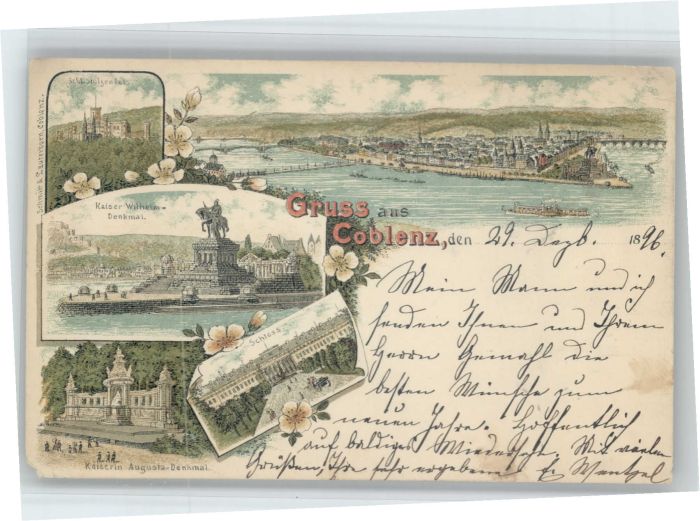 Schloss Stolzenfels.
Kaiser Wilhelm-
Denkmal.
Gruss aus
Coblenz, den 29. Dezb. 1896.
Schloss
Kaiserin Augusta-Denkmal.
Mein Mann und ich
senden Ihnen und Ihrem
Herrn Gemahl die
besten Wünsche zum
neuen Jahre. Hoffentlich
auf baldiges Wiedersehen. Mit vielen
Grüßen, Ihre sehr ergebene